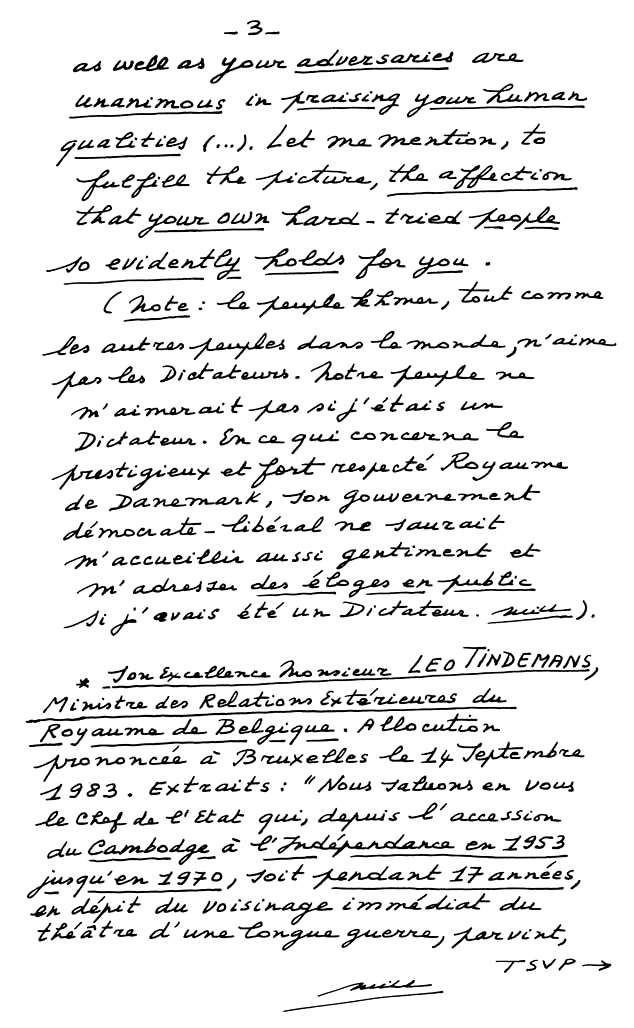 _ 3 _
as well as your adversaries are
unanimous in praising your human
qualities (...). Let me mention, to
fulfill the picture, the affection
that your own hard-tried people
so evidently holds for you.
(Note : le peuple khmer, tout comme
les autres peuples dans le monde, n'aime
pas les Dictateurs. Notre peuple ne
m'aimerait pas si j'étais un
Dictateur. En ce qui concerne le
prestigieux et fort respecté Royaume
de Danemark, son gouvernement
démocrate-libéral ne saurait
m'accueillir aussi gentiment et
m'adresser des éloges en public
si j'avais été un Dictateur. ).
* Son Excellence Monsieur LEO TINDEMANS,
Ministre des Relations Extérieures du
Royaume de Belgique. Allocution
prononcée à Bruxelles le 14 Septembre
1983. Extraits : "Nous saluons en vous
le Chef de l'Etat qui, depuis l'accession
du Cambodge à l'Indépendance en 1953
jusqu'en 1970, soit pendant 17 années,
en dépit du voisinage immédiat du
théâtre d'une longue guerre, parvint,
TSVP →